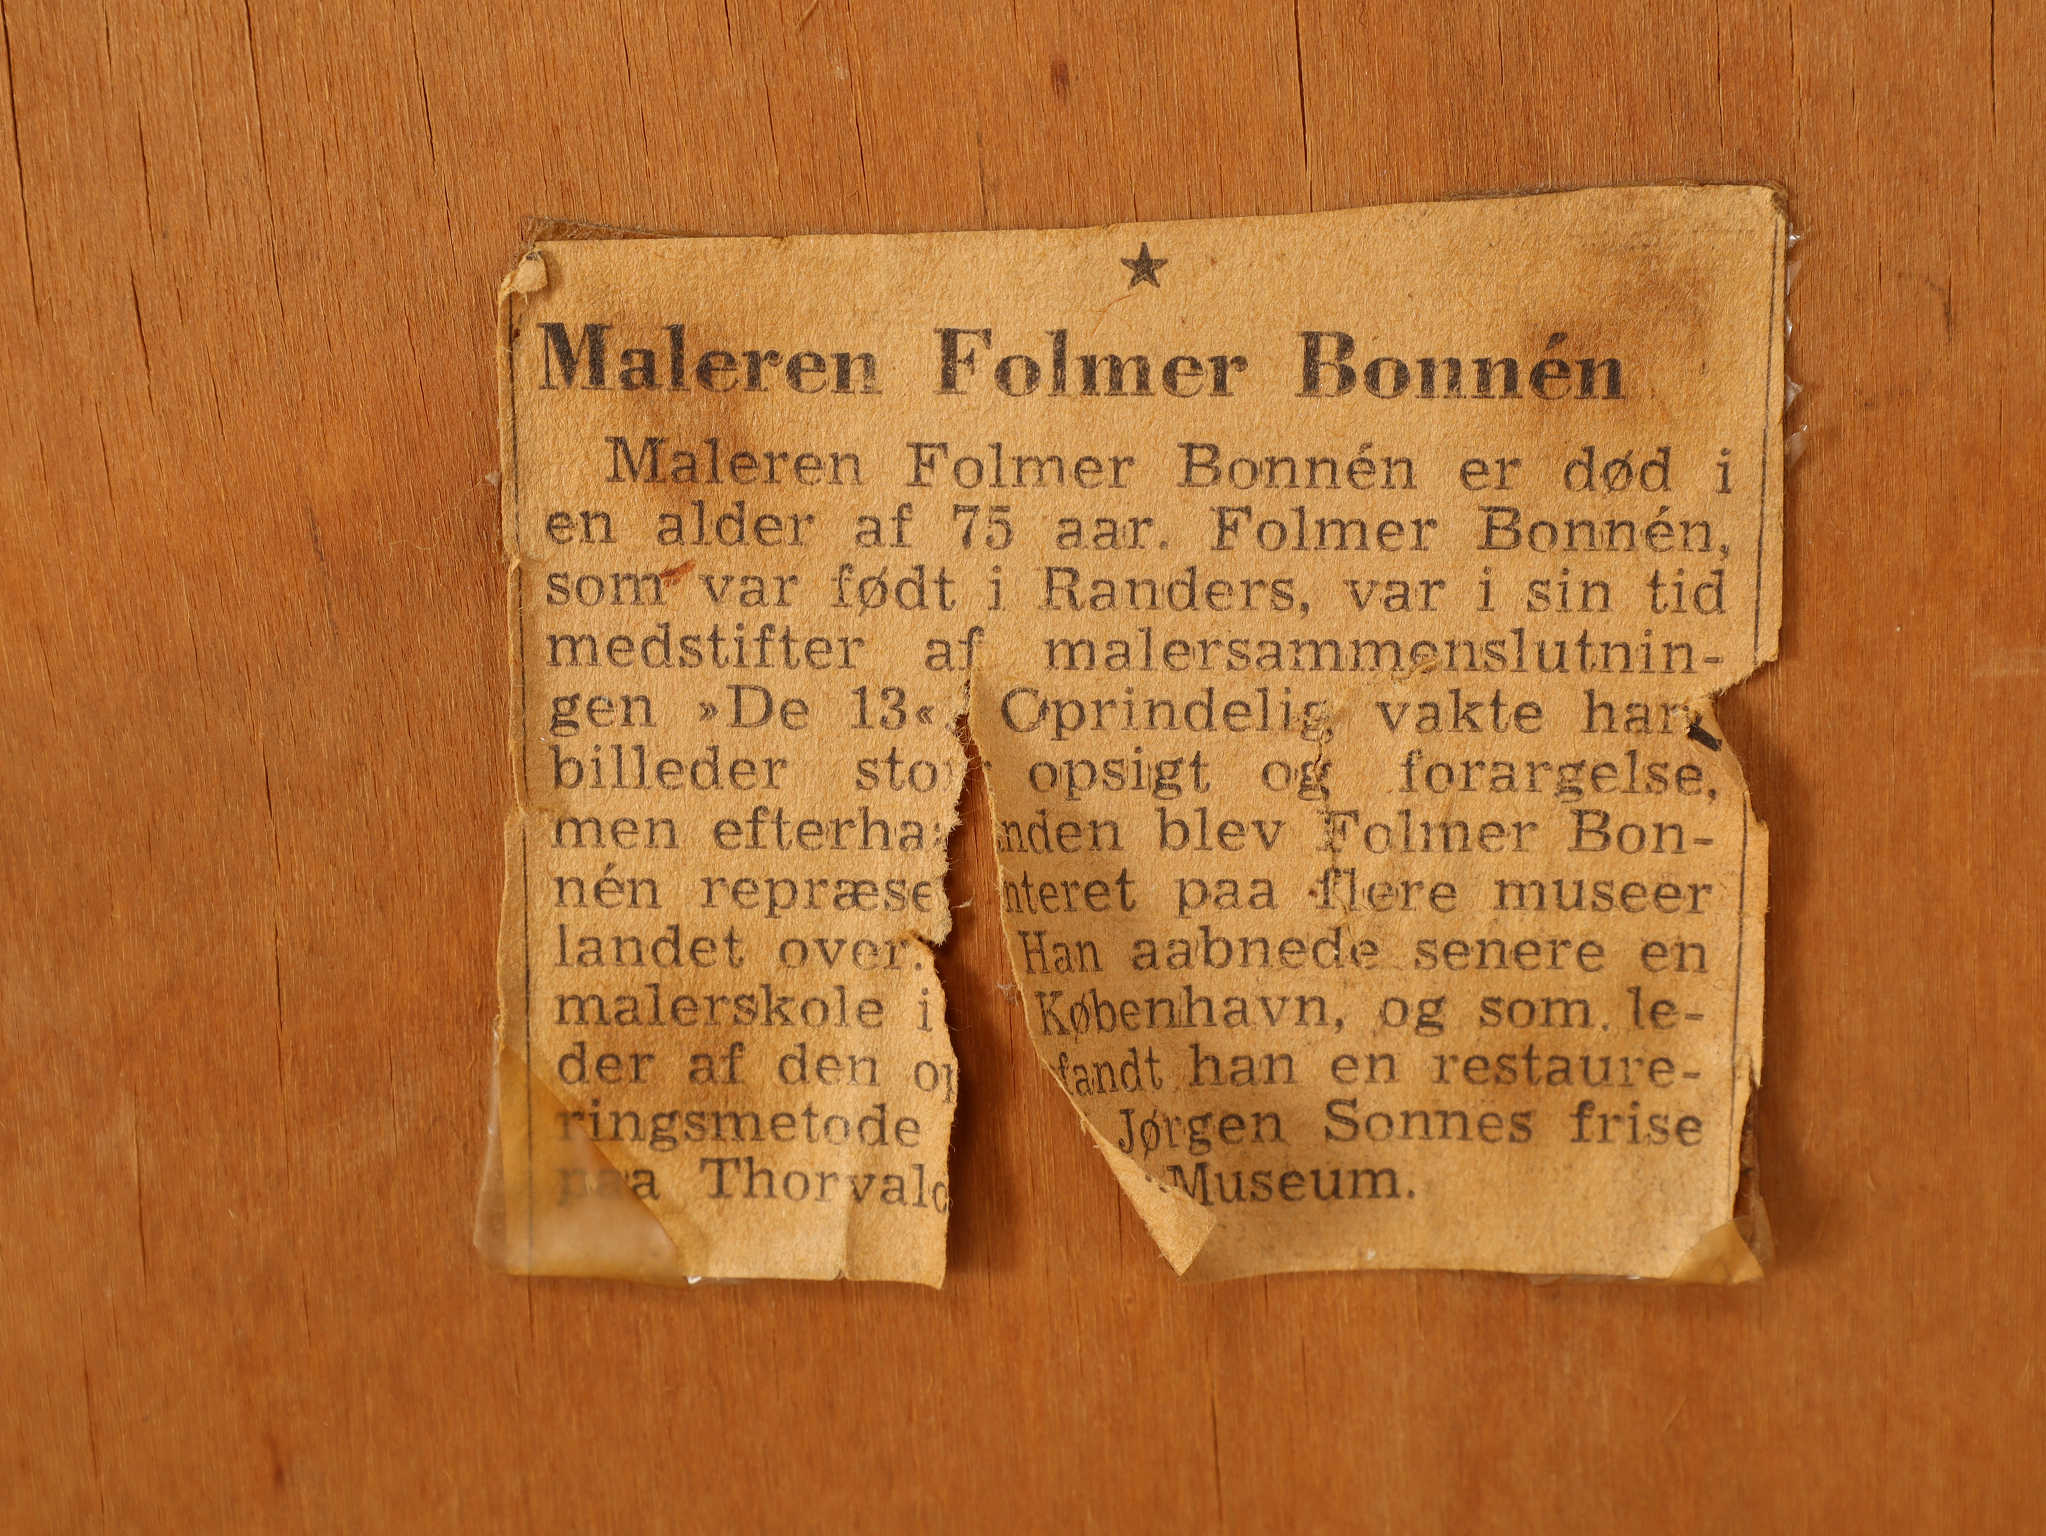 Maleren Folmer Bonnén
Maleren Folmer Bonnén er død i
en alder af 75 aar. Folmer Bonnén,
som var født i Randers, var i sin tid
medstifter af malersammenslutnin-
gen »De 13«. Oprindelig vakte han
billeder stor opsigt og forargelse,
men efterhaanden blev Folmer Bon-
nén repræsenteret paa flere museer
landet over. Han aabnede senere en
malerskole i København, og som le-
der af den opfandt han en restaure-
ringsmetode Jørgen Sonnes frise
paa Thorvald Museum.